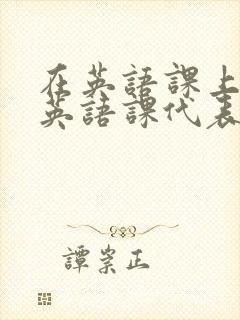 在英語課上
英語課代表
譚崇正